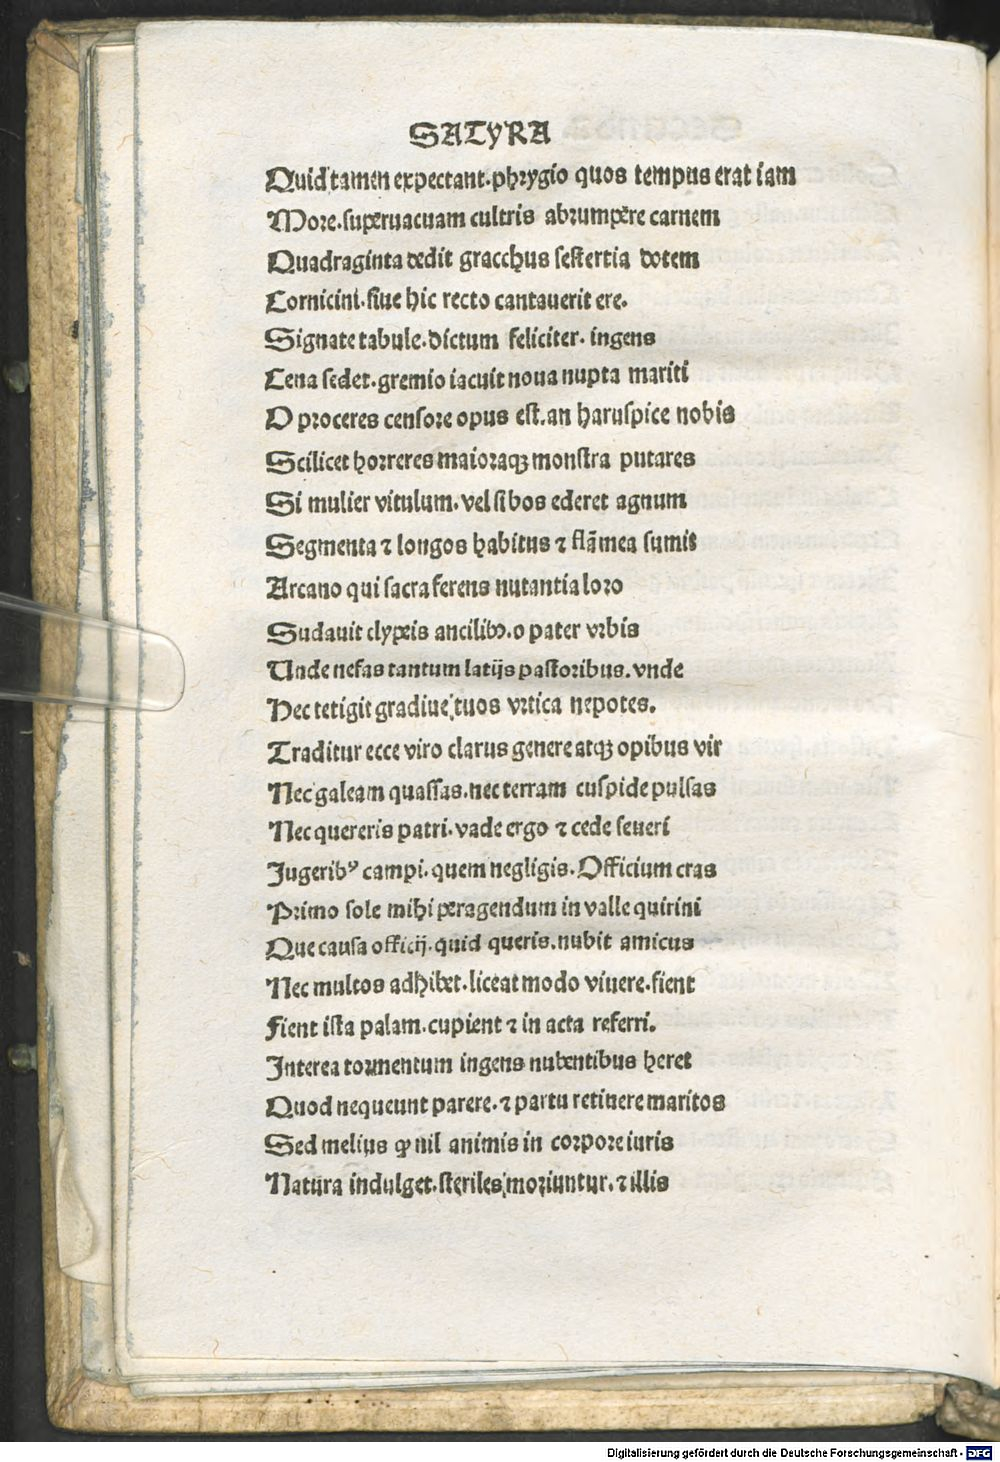 SATYRA
Quid tamen expectant.phrygio quos tempus erat iam
More.superuacuam cultris abrumpere carnem
Quadraginta dedit gracchus sestertia dotem
Cornicini.siue hic recto cantauerit ere.
Signate tabule.dictum feliciter. ingens
Cena sedet.gremio iacuit noua nupta mariti
O proceres censore opus est.an haruspice nobis
Scilicet horreres maioraqꝫ monstra putares
Si mulier vitulum.vel si bos ederet agnum
Segmenta ⁊ longos habitus ⁊ flãmea sumit
Arcano qui sacra ferens nutantia loro
Sudauit clypeis ancilibꝰ.o pater vrbis
Unde nefas tantum latijs pastoribus.vnde
Hec tetigit gradiue tuos vrtica nepotes.
Traditur ecce viro clarus genere atqꝫ opibus vir
Nec galeam quassas.nec terram cuspide pulsas
Nec quereris patri.vade ergo ⁊ cede seueri
Jugeribꝰ campi.quem negligis.Officium cras
Primo sole mihi peragendum in valle quirini
Que causa officij.quid queris.nubit amicus
Nec multos adhibet.liceat modo viuere.fient
Fient ista palam.cupient ⁊ in acta referri.
Interea tormentum ingens nubentibus heret
Quod nequeunt parere.⁊ partu retinere maritos
Sed melius ꝙ nil animis in corpore iuris
Natura indulget.steriles moriuntur.⁊ illis
Digitalisierung gefördert durch die Deutsche Forschungsgemeinschaft - DFG